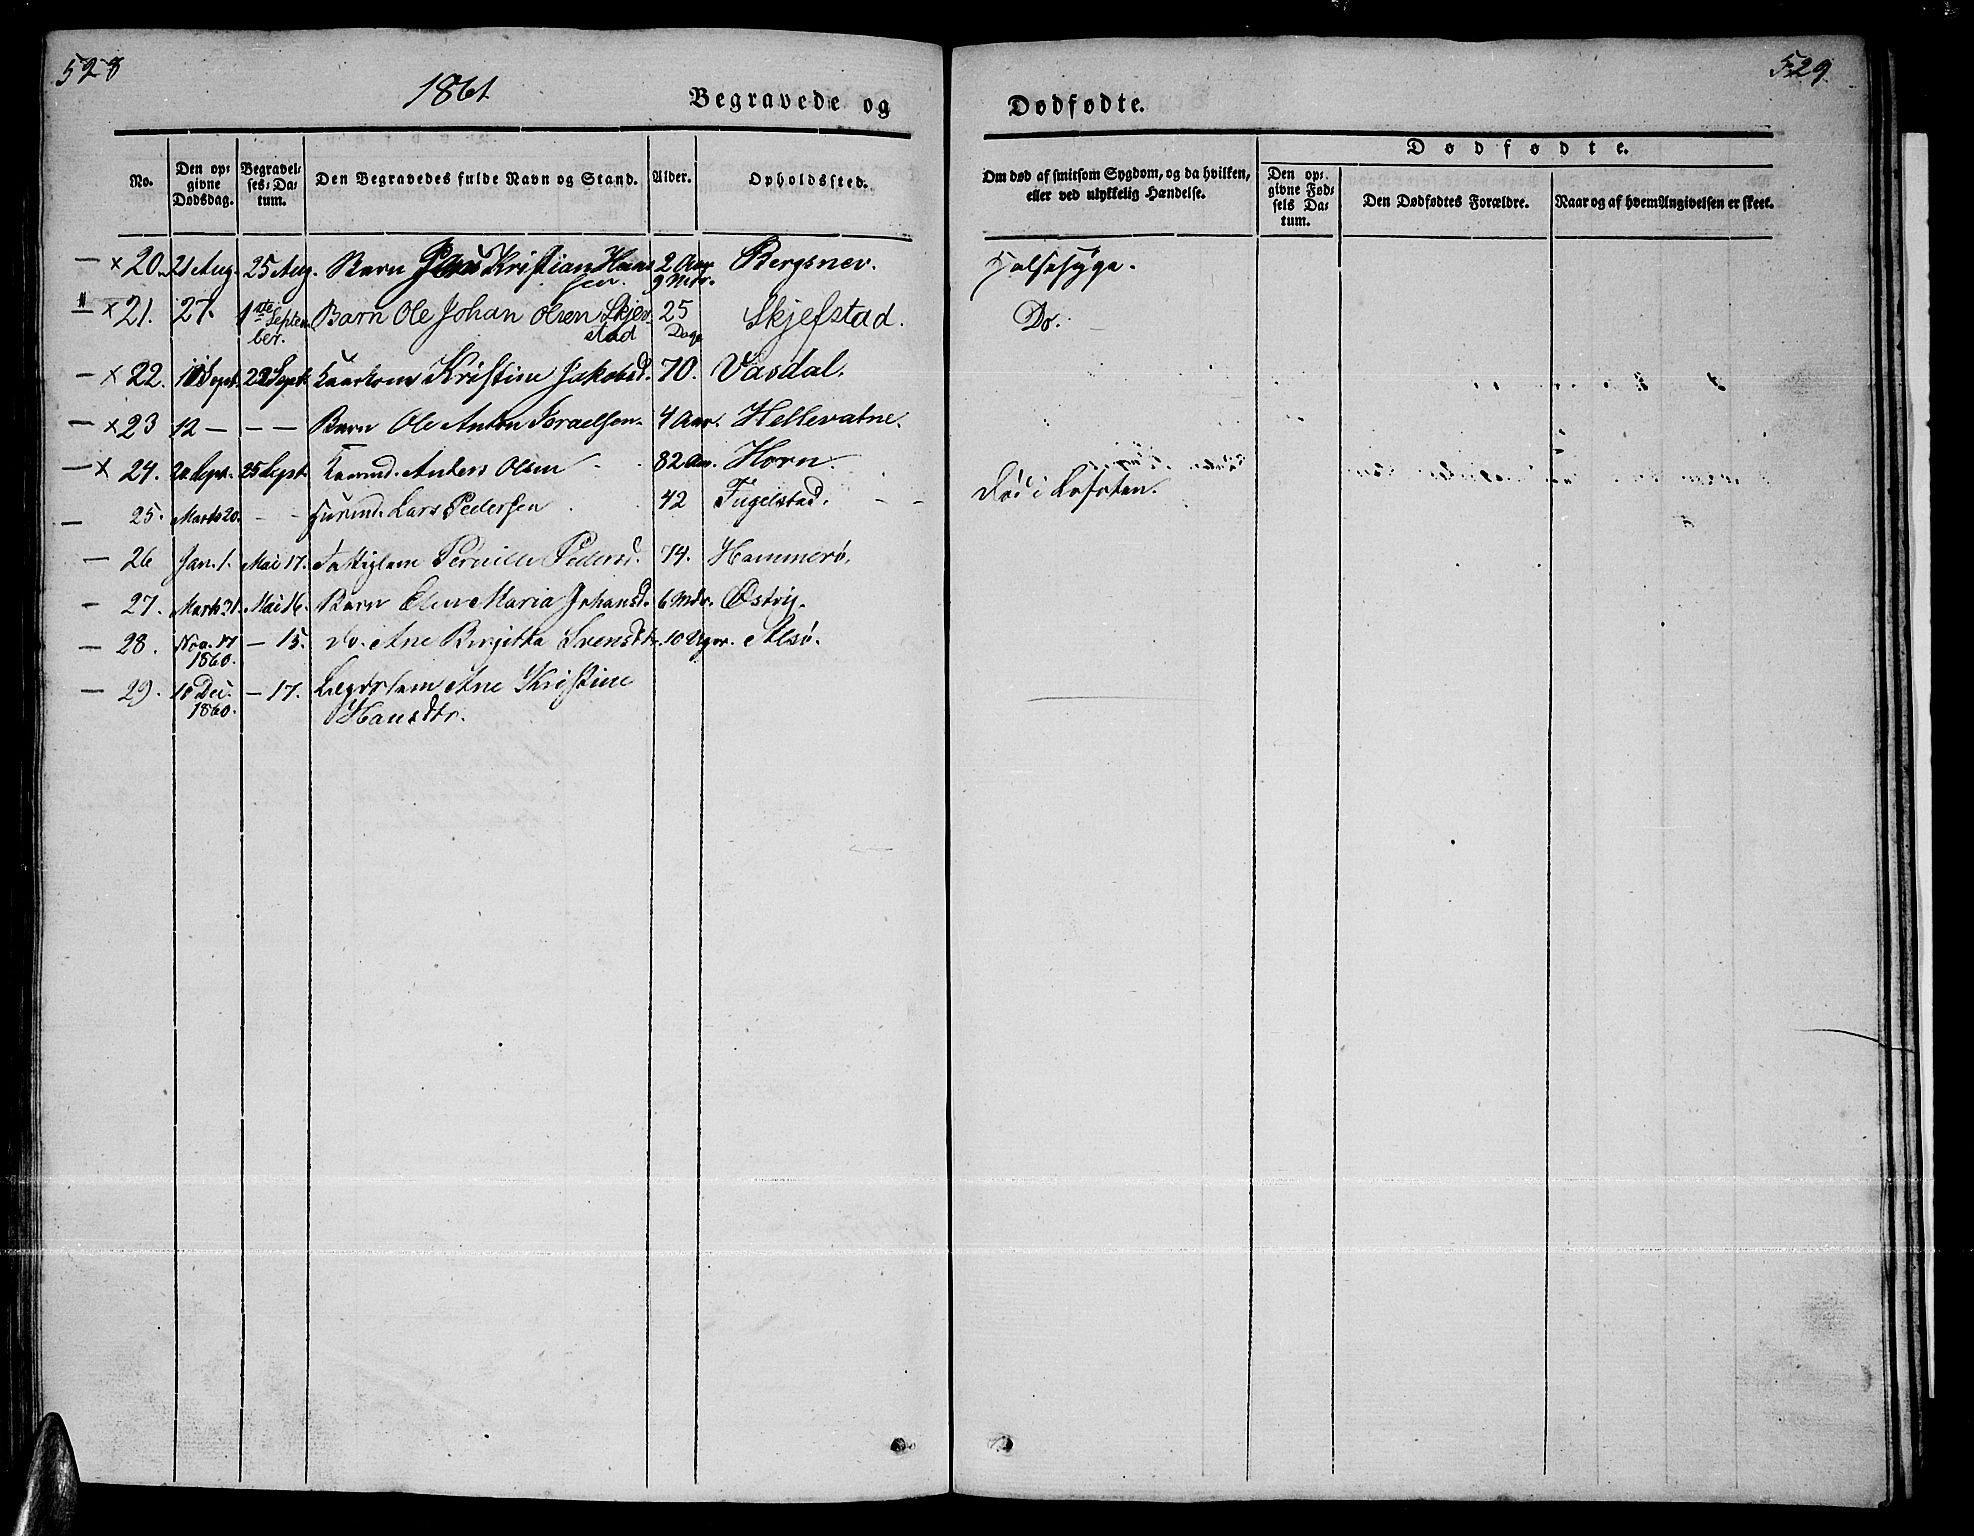 528
1861
Begravede og
No. Den opgivne Dødsdag. Begravelses-Datum. Den Begravedes fulde Navn og Stand. Alder. Opholdssted.
20. 21 Aug. 25 Aug. Barn Kristian Hans 2 Aar Bergsnev.
sen. 9 Mdr.
21. 27. 1ste Septem Barn Ole Johan Olsen Skjev 25 Skjefstad.
ber. stad Dage
22. Sept. Sept. Kristine Jakobsd. 70. Vasdal.
23 12 – – – Barn Ole Anton Israelsen. 4 Aar. Hellevatne.
24. 20 Sept. 25 Sept. Anders Olsen 82 Aar. Horn.
25. Marts 20. – – Lars Pedersen 42 Tugelstad.
26 Jan. 1. Mai 17. Fattiglem Pernille Pedersd. 74. Hammerø.
27. Marts 31. Mai 16. Barn Elen Maria Johansd. 6 Mdr. Østvig.
28. Nov. 17 – 15. Do. Ane Birgitta Svensdtr. 10 Uger. Alsø.
1860.
29. 18 Dec. – 17. Lægdslem Ane Kristine
1860. Hansdtr.
529
Dødfødte.
Om død af smitsom Sygdom, og da hvilken, eller ved ulykkelig Hændelse.
Dødfødte.
Den opgivne Fødsels Datum. Den Dødfødtes Forældre. Naar og af hvem Angivelsen er skeet.
Halsesyge.
Do.
Død i Lofoten.